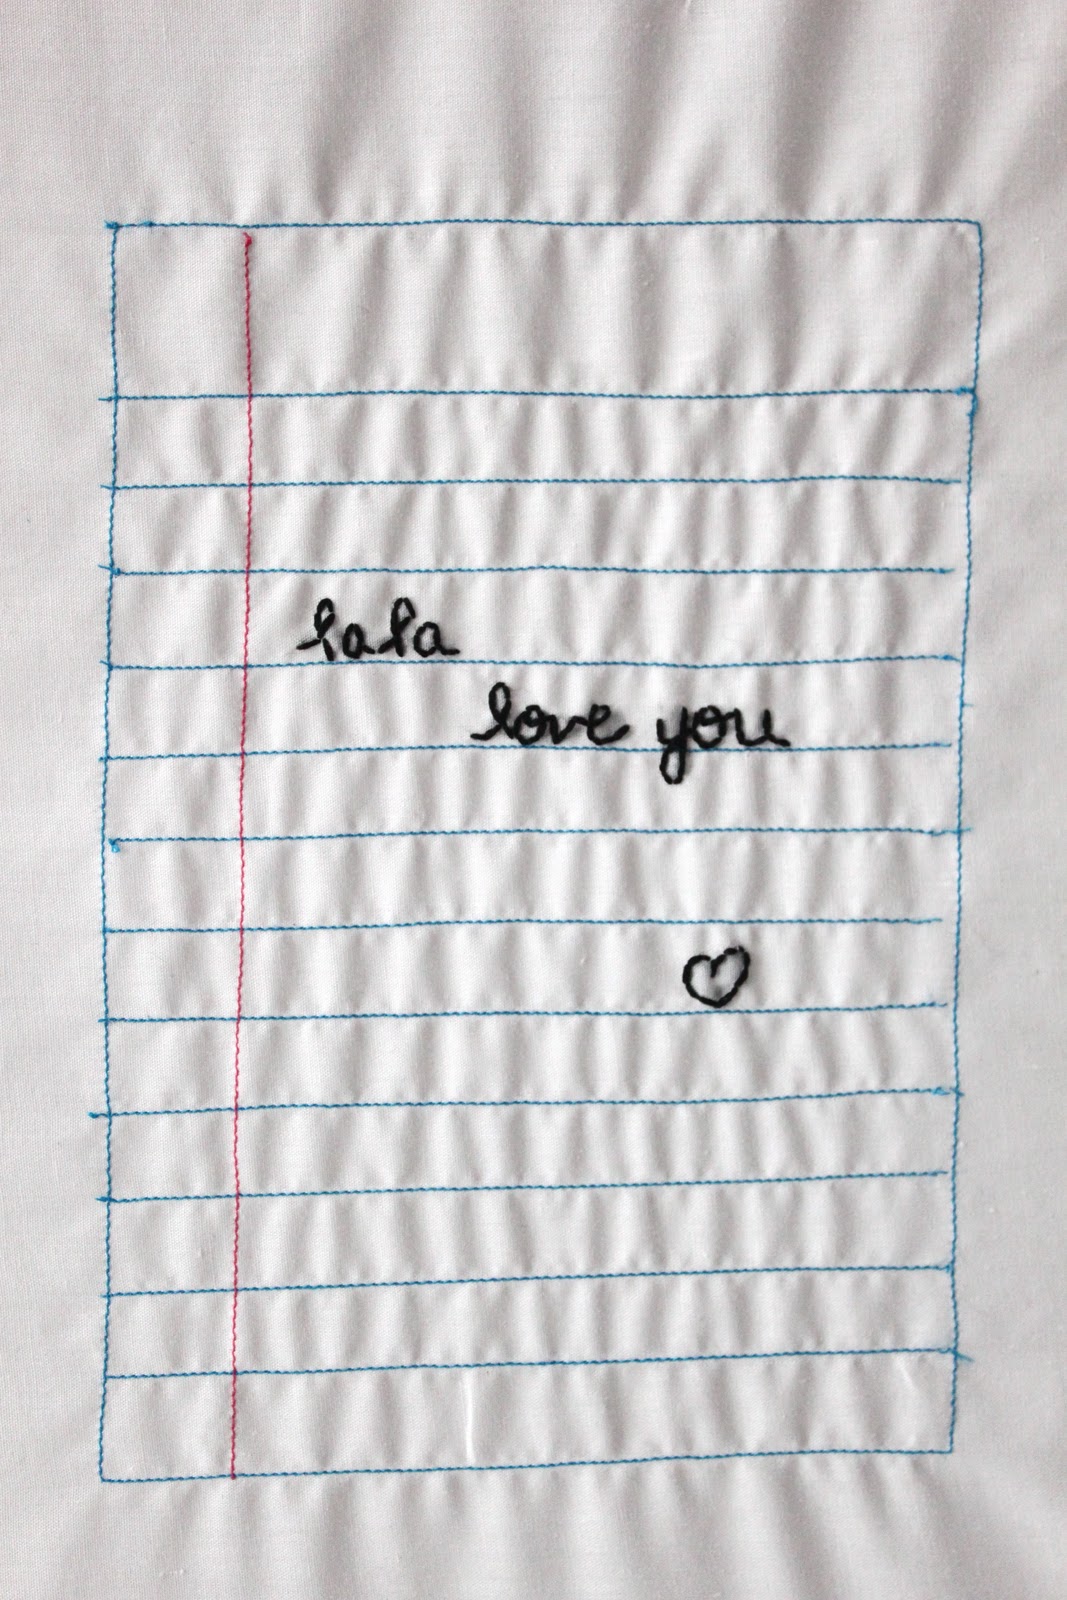 lala
love you